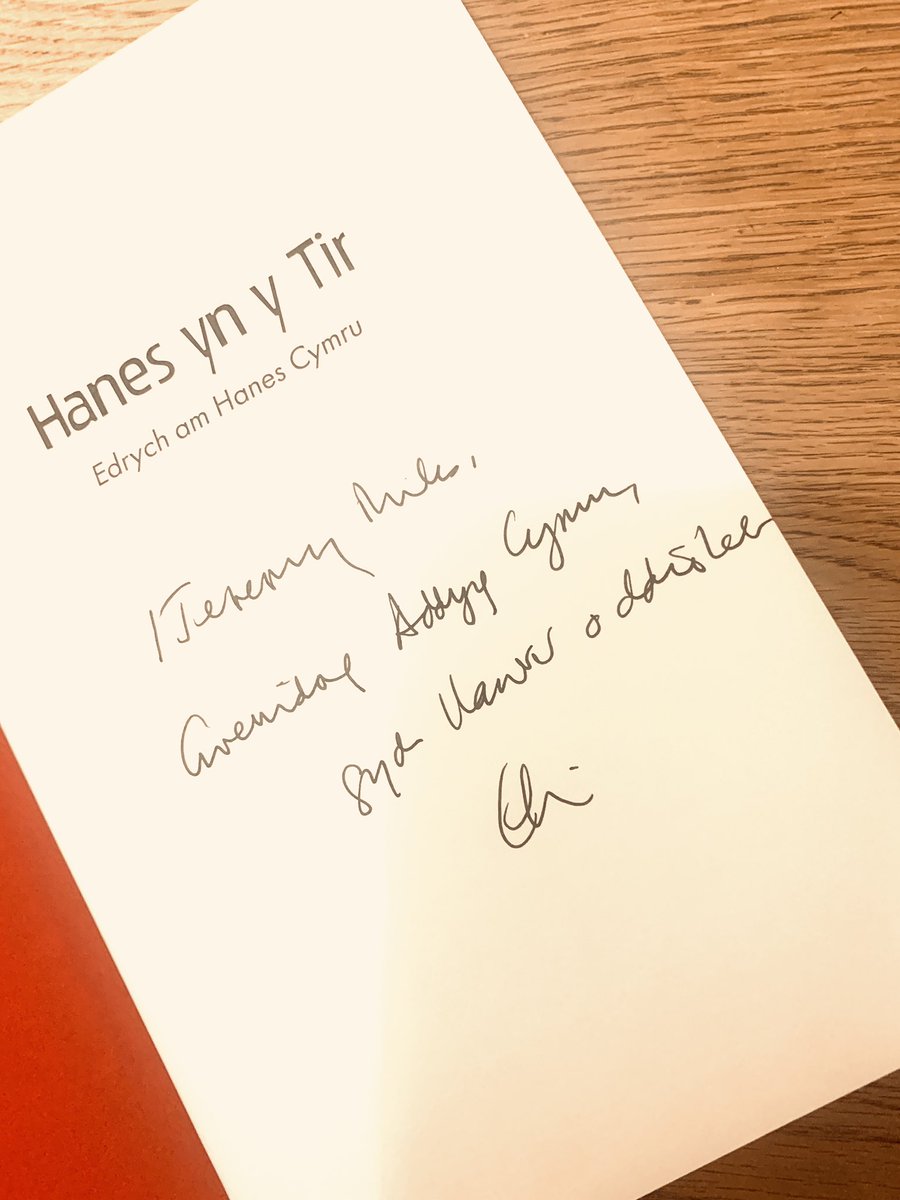 Hanes yn y Tir
Edrych am Hanes Cymru
I Jeremy Miles,
Gweinidog Addysg Cymru,
gyda llawer o ddiolch